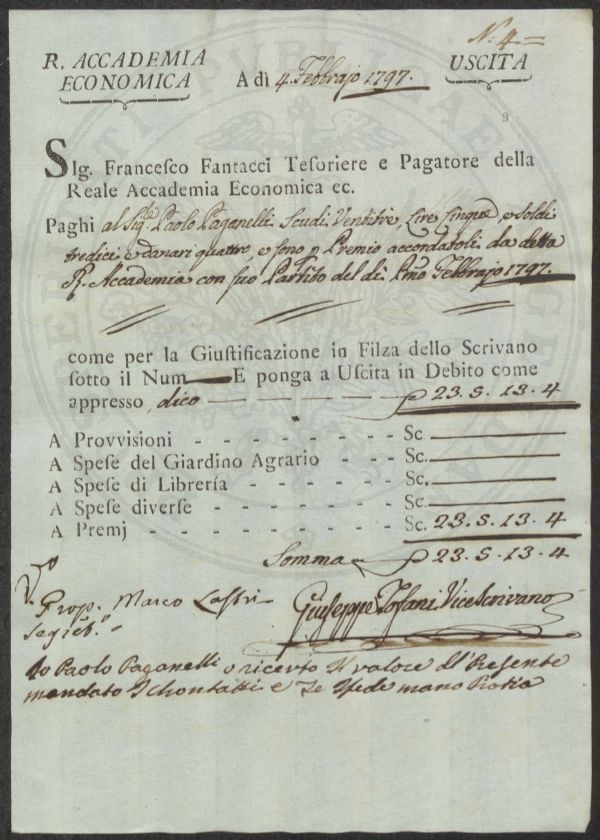 N. 4 =
R. ACCADEMIA ECONOMICA
A dì 4. Febbrajo 1797.
USCITA
9
SIg. Francesco Fantacci Tesoriere e Pagatore della
Reale Accademia Economica ec.
Paghi al Sig.e Paolo Paganelli Scudi Ventitre, Lire Cinque, e soldi
tredici e danari quattro, e sono p Premio accordatoli da detta
R. Accademia con suo Partito del dì Pmo Febbrajo 1797.
come per la Giustificazione in Filza dello Scrivano
sotto il Num E ponga a Uscita in Debito come
appresso, dico 23. 5. 13. 4
A Provvisioni - - - - - - - - Sc.
A Spese del Giardino Agrario - - - - Sc.
A Spese di Librería - - - - - - - Sc.
A Spese diverse - - - - - - - - Sc.
A Premj - - - - - - - - - - Sc. 23. 5. 13. 4
Somma 23. 5. 13. 4
Prop. Marco Lastri
Segret.o
Giuseppe Tofani ViceScrivano
Io Paolo Paganelli o riceuto Il valore dl Presente
mandato I chontatti e Fede mano Propia